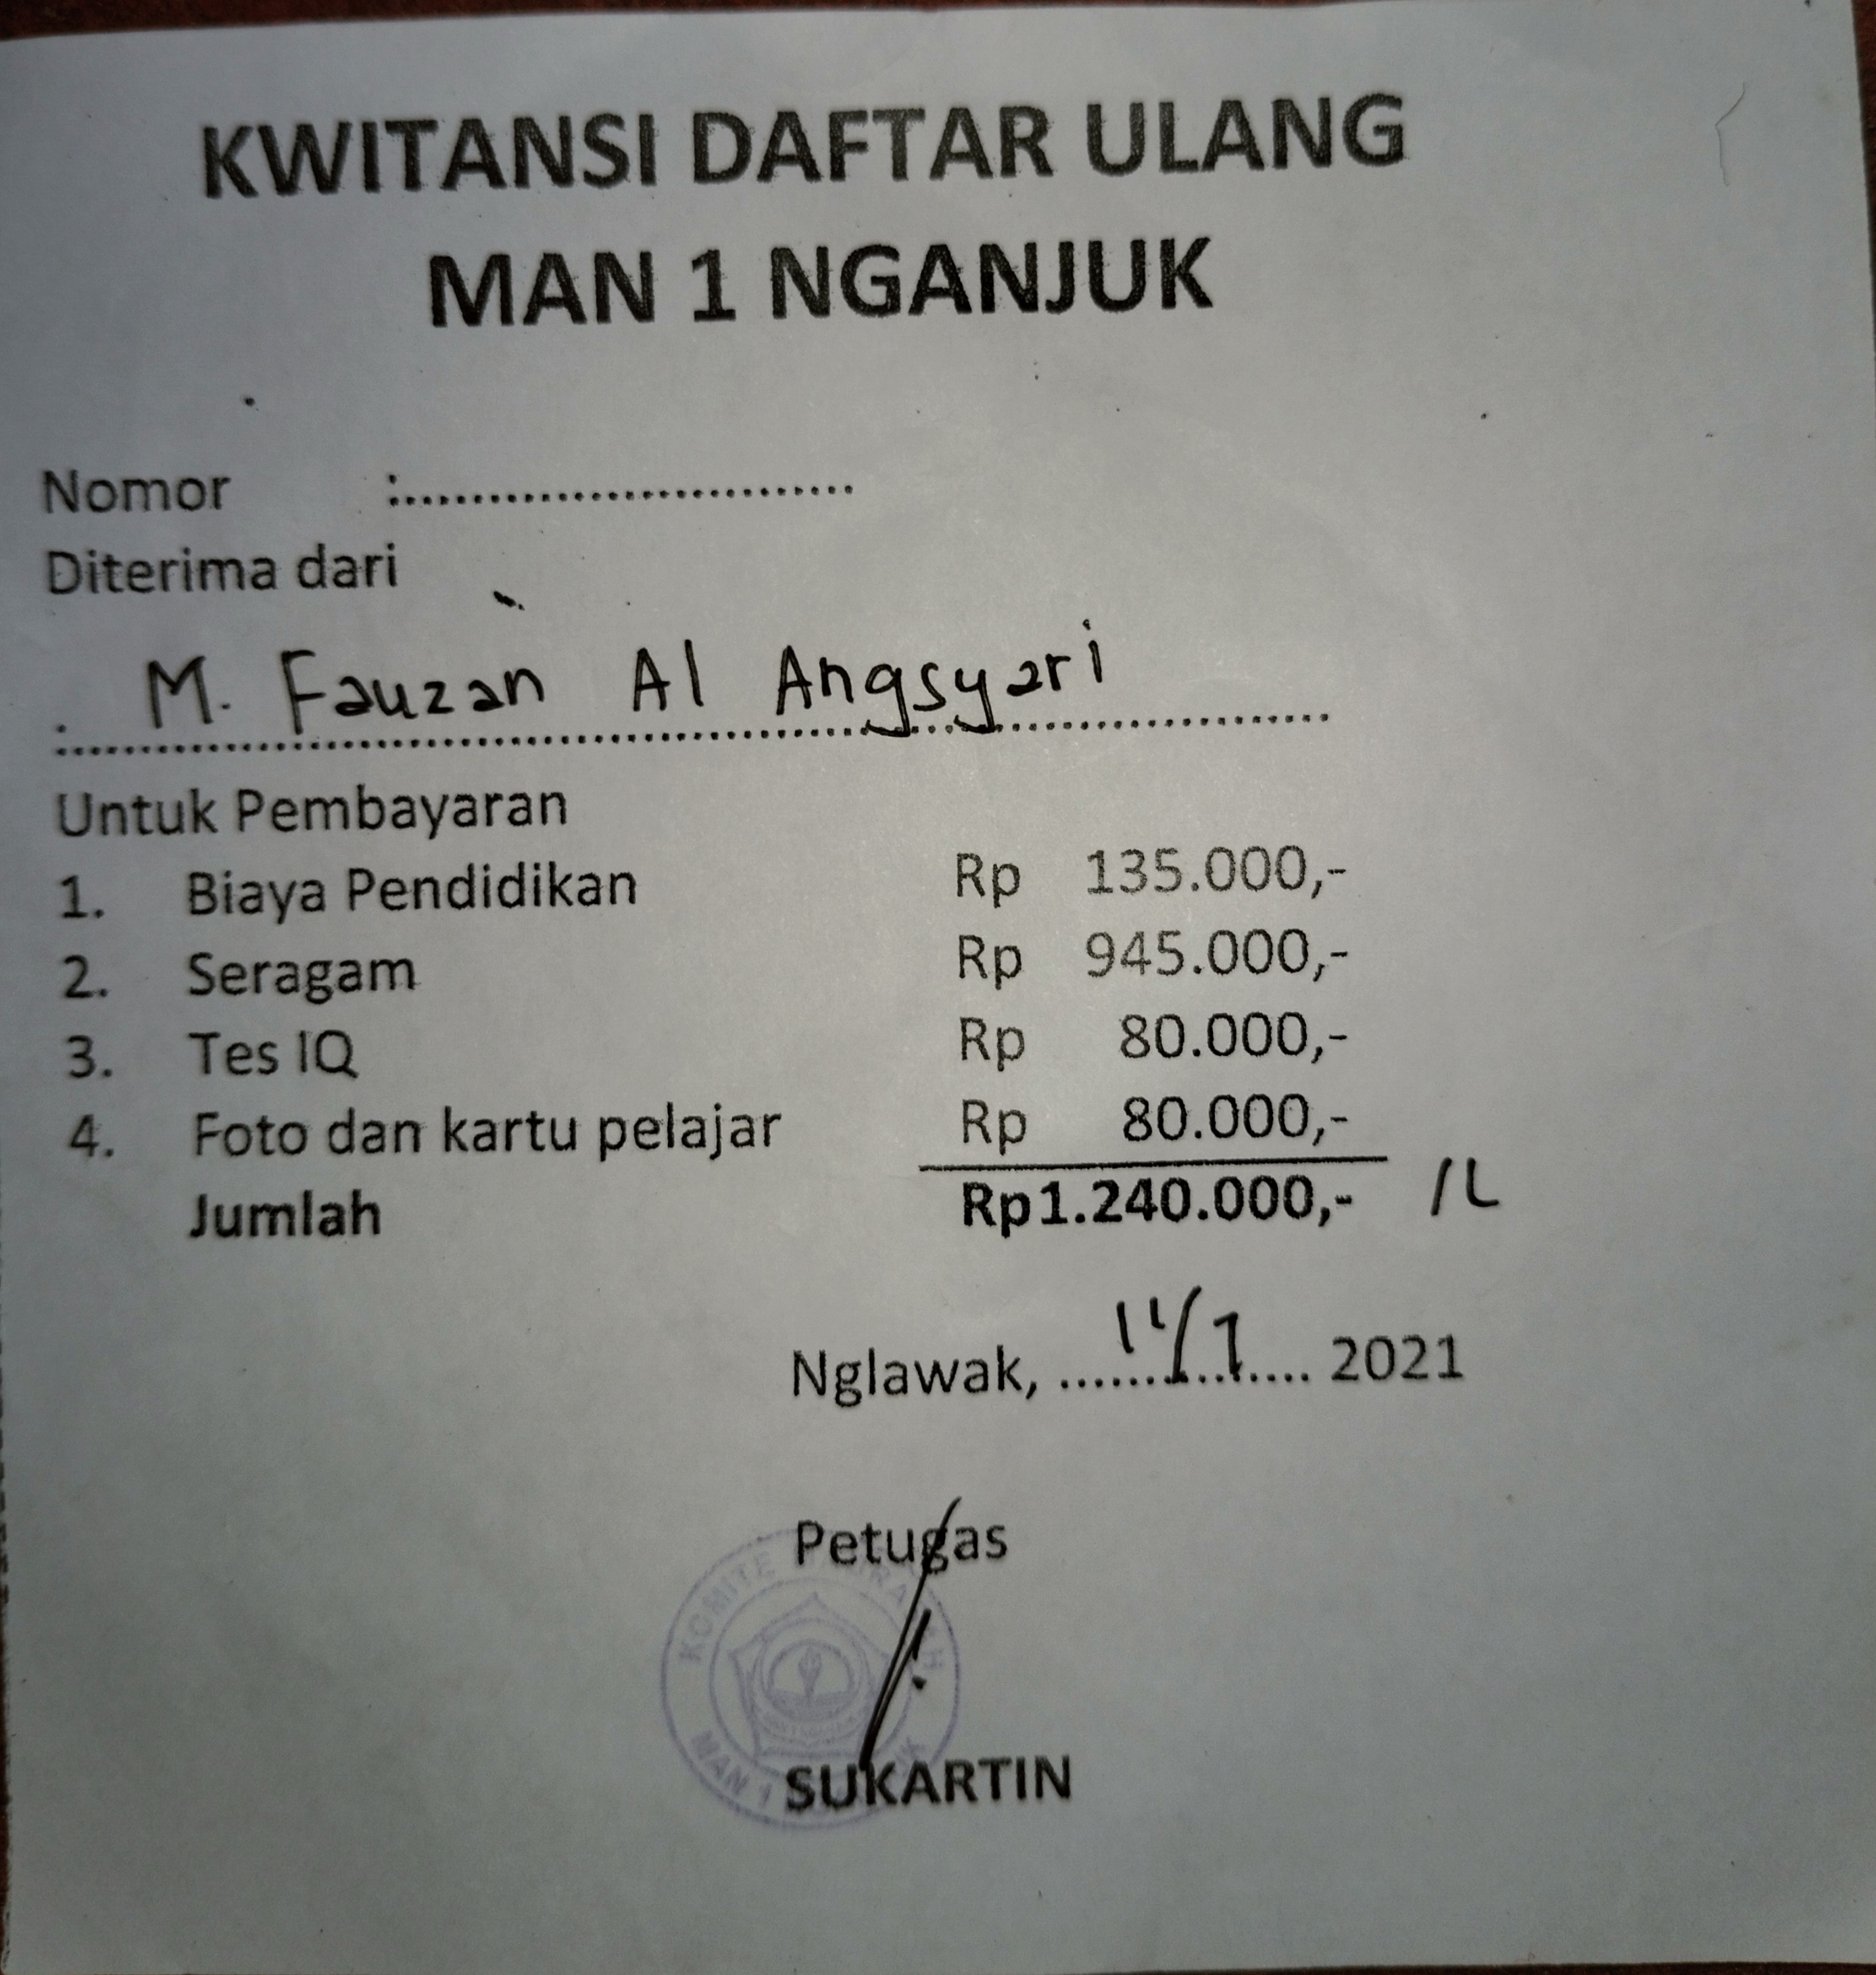 KWITANSI DAFTAR ULANG
MAN 1 NGANJUK
Nomor :............................
Diterima dari
M. Fauzan Al Angsyari
Untuk Pembayaran
1. Biaya Pendidikan Rp 135.000,-
2. Seragam Rp 945.000,-
3. Tes IQ Rp 80.000,-
4. Foto dan kartu pelajar Rp 80.000,-
Jumlah Rp1.240.000,- /L
Nglawak, 2021
Petugas
KOMITE
MAN 1
SUKARTIN